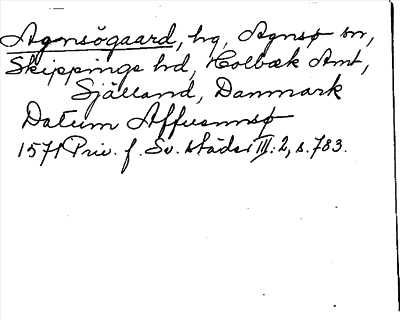 Agnsögaard, hg, Agnsø sn,
Skippinge hd, Holbæk Amt,
Själland, Danmark
Datum Affuennsø
1571 Priv. f. Sv. städer III:2, s. 783.